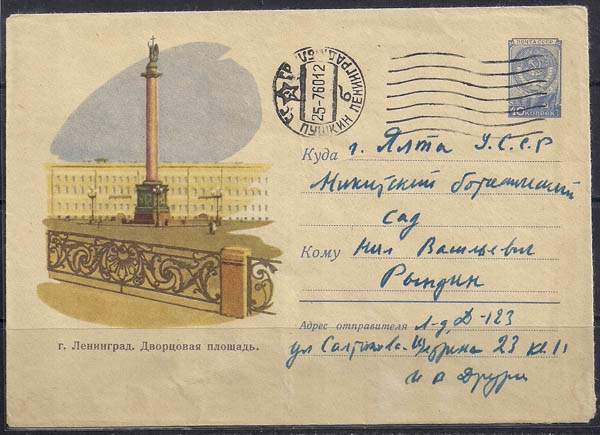 ПОЧТА СССР
40 КОПЕЕК
ПУШКИН ЛЕНИНГРАД. ОБЛ.
25-7 60 12
Куда г. Ялта У.С.С.Р
Никитский ботанический
сад
Кому Нил Васильевич
Рындин
Адрес отправителя Л-д, Д-123
ул Салтыкова-Щедрина 23 кв 11
г. Ленинград. Дворцовая площадь.